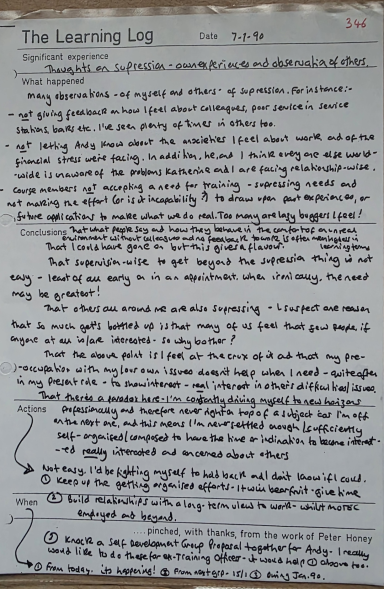 346
The Learning Log Date 7-1-90
Significant experience
Thoughts on supression - own experiences and observation of others.
What happened
Many observations - of myself and others - of supression. For instance:-
- not giving feedback on how I feel about colleagues, poor service in service
stations, bars etc. I've seen plenty of times in others too.
- not letting Andy know about the anxieties I feel about work and of the
financial stress we're facing. In addition, he, and I think everyone else world-
wide is unaware of the problems Katherine and I are facing relationship-wise.
- Course members not accepting a need for training - supressing needs and
not making the effort (or is it incapability?) to draw upon past experiences, or
future applications to make what we do real. Too many are lazy buggers I feel!
Conclusions That what people say and how they behave in the comfort of an unreal
environment without colleagues and no feedback to work is often meaningless in
learning terms
That I could have gone on but this gives a flavour.
That supervision-wise to get beyond the supression thing is not
easy - least of all early on in an appointment, when ironically, the need
may be greatest!
That others all around me are also supressing - I suspect one reason
that so much gets bottled up is that many of us feel that few people, if
anyone at all is/are interested - so why bother?
That the above point is I feel at the crux of it and that my pre-
-occupation with my/our own issues doesn't help when I need - quite often
in my present role - to show interest - real interest in other's difficulties/issues.
That there's a paradox here - I'm constantly driving myself to new horizons
Actions professionally and therefore never right on top of a subject cos I'm off
on the next one, and this means I'm never settled enough/sufficiently
self-organised/composed to have the time or inclination to become interest-
-ed really interested and concerned about others
Not easy. I'd be fighting myself to hold back and I don't know if I could.
① Keep up the getting organised efforts - It will bear fruit - give time
② Build relationships with a long-term view to work - whilst MOTEC
When employed and beyond.
.....pinched, with thanks, from the work of Peter Honey
③ Knock a Self Development Group Proposal together for Andy. I really
would like to do these for ex-Training Officer - it would help ① above too.
① From today. its happening! ② From next grp - 15/1 ③ During Jan. 90.